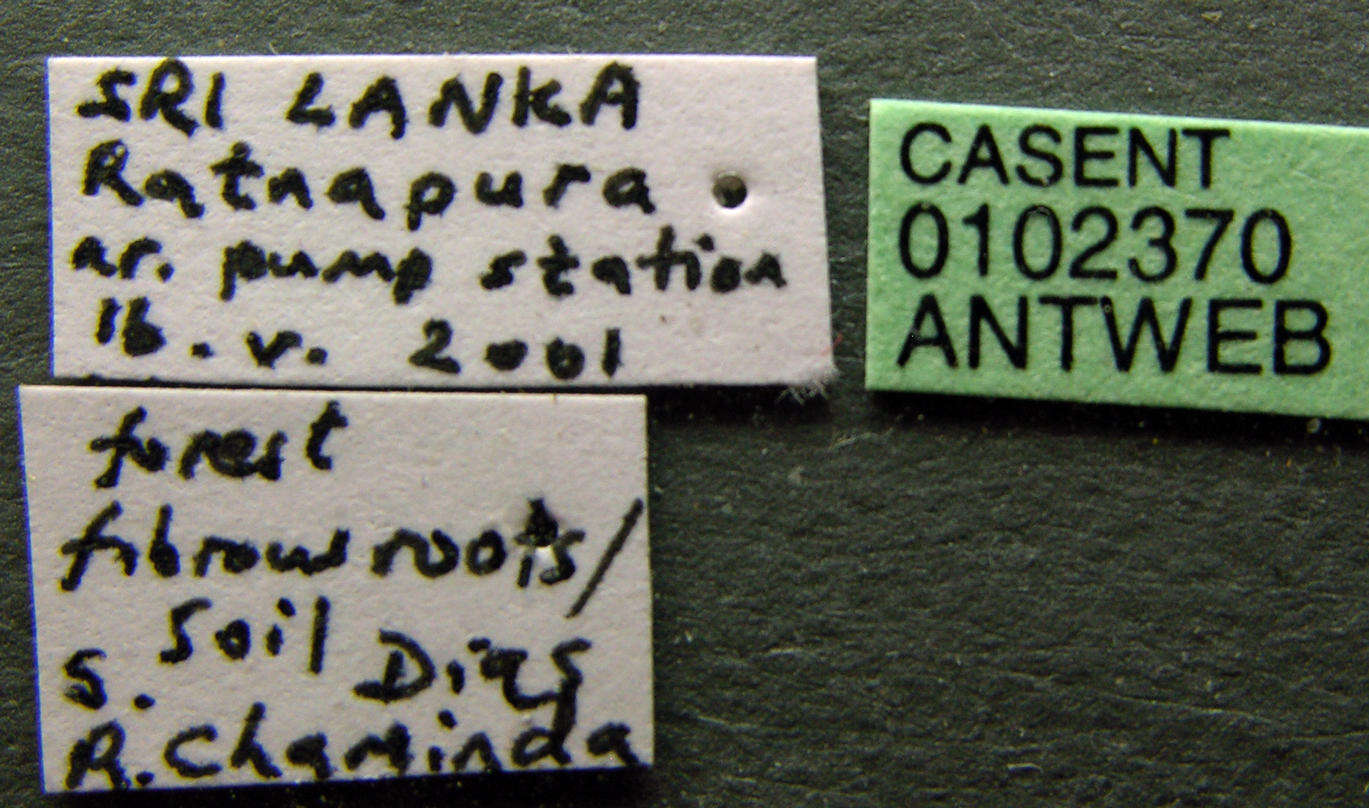 SRI LANKA
Ratnapura
nr. pump station
16. v. 2001
forest
fibrous roots/
soil
S. Dias
R. Chaminda
CASENT
0102370
ANTWEB